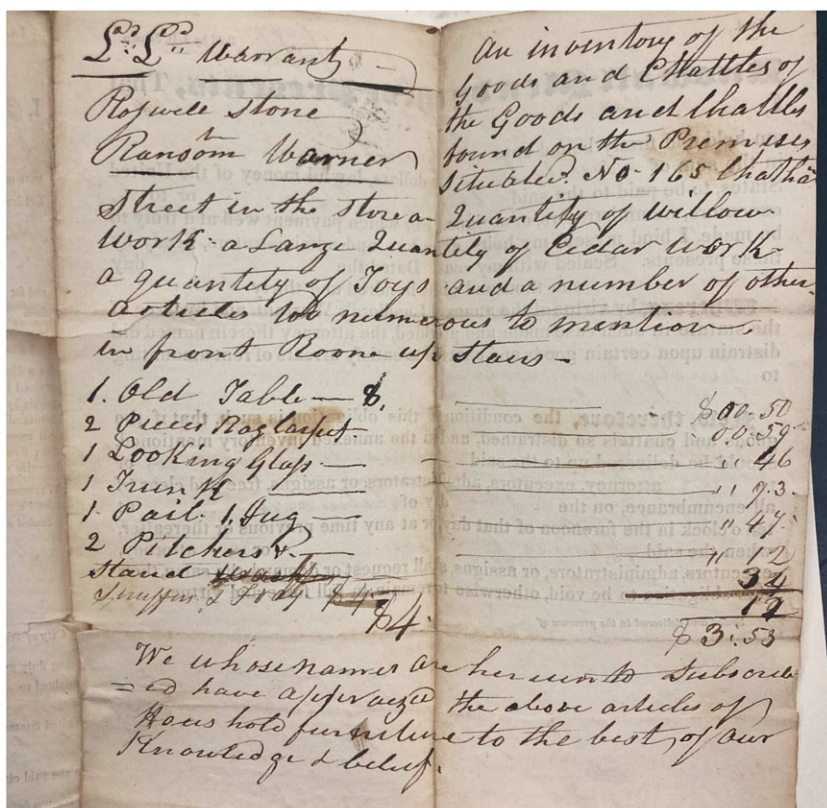 Ld. Ld. Warrant
Roswell Stone
vs
Ransom Warner
An inventory of the
Goods and Chattles of
the Goods and Chattles
found on the Premises
Situated No. 165 Chatham
Street in the Store a Quantity of Willow
Work a Large Quantity of Cedar Work
a quantity of Toys and a number of other
articles too numerous to mention
in front Room up Stairs
1. Old Table $00.50
2 Pieces Rag Carpet 00.59
1 Looking Glass " 46
1 Trunk " 73
1 Pail 1 Jug " 47
2 Pitchers " 12
Stand 34
Snuffers & Tray 12
$4. $3.53
We whose names are hereunto Subscrib
=ed have appraized the above articles of
Household furniture to the best of our
Knowledge & belief.